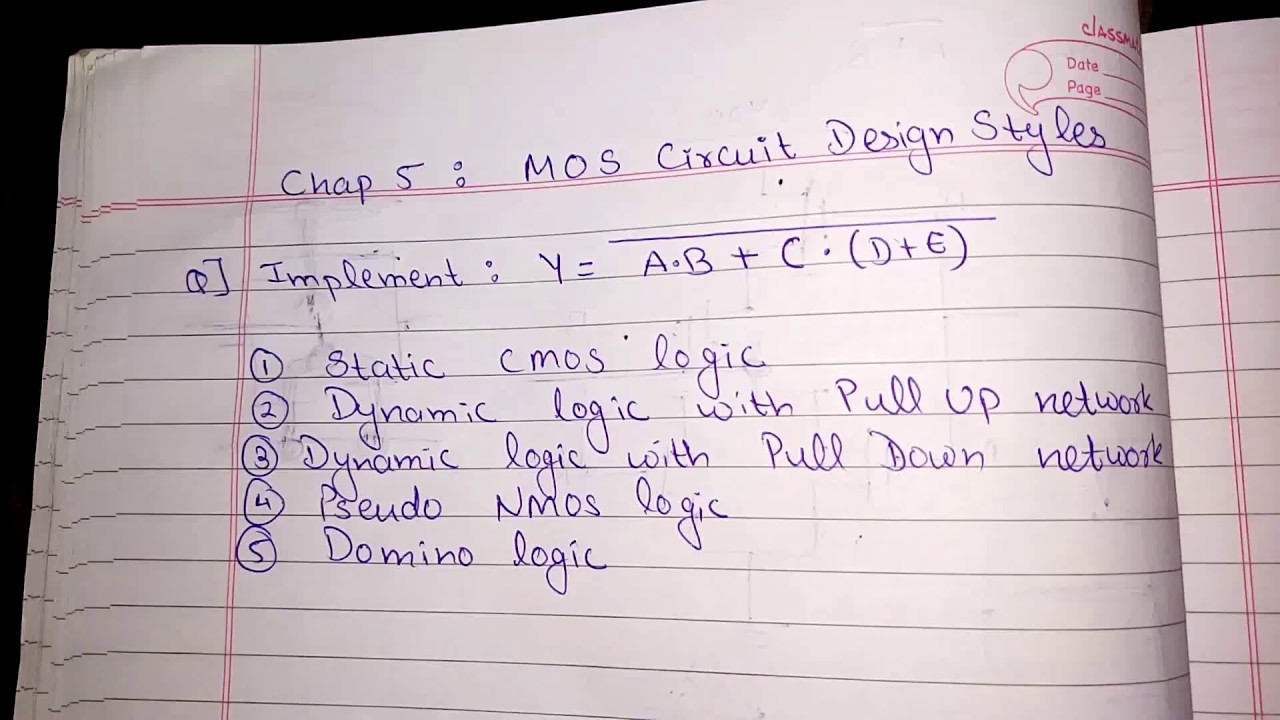 CLASSMA
Date
Page
Chap 5 : MOS Circuit Design Styles
Q] Implement : Y = \overline{A·B + C·(D+E)}
① Static CMOS logic
② Dynamic logic with Pull Up network
③ Dynamic logic with Pull Down network
④ Pseudo NMOS logic
⑤ Domino logic